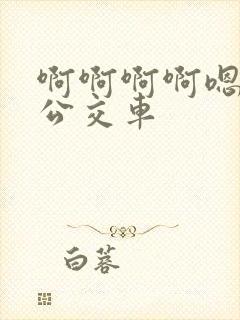 啊啊啊啊嗯
公交车
白蓉